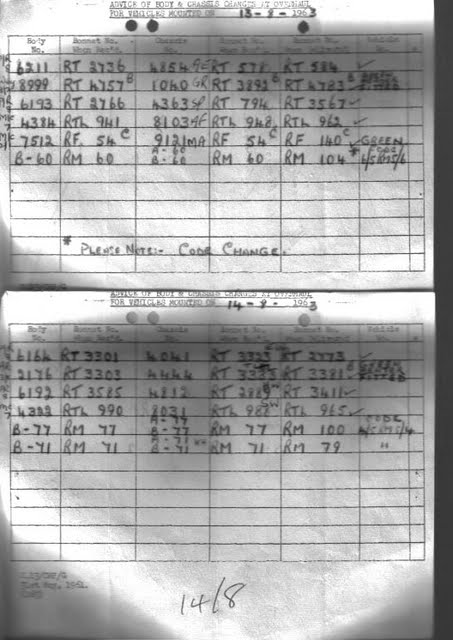 ADVICE OF BODY & CHASSIS CHANGES AT OVERHAUL
FOR VEHICLES MOUNTED ON 13-8- 1963
Body No. Bonnet No. When Rec'd. Chassis No. Bonnet No. When Rec'd. Bonnet No. When Delivered. Vehicle No.
6211 RT 2736 4854 RT 578 RT 584 ✓
8999 RT 4757 B 1040 GR RT 3892 B RT 4783 B
6193 RT 2766 4363 SP RT 794 RT 3567 ✓
4384 RTL 941 8103 RTL 948 RTL 962 ✓
7512 RF. 54 C 9121 MA RF 54 C RF 140 C ✓ GREEN
B-60 RM 60 A-60 B-60 RM 60 RM 104 * CODE 4/5RM5/4
* PLEASE NOTE:- CODE CHANGE.
ADVICE OF BODY & CHASSIS CHANGES AT OVERHAUL
FOR VEHICLES MOUNTED ON 14-8- 1963
Body No. Bonnet No. When Rec'd. Chassis No. Bonnet No. When Rec'd. Bonnet No. When Delivered. Vehicle No.
6164 RT 3301 4041 RT 3323 RT 2773 ✓
2176 RT 3303 4444 RT RT 3381 B GREEN FITTED
6192 RT 3585 4812 RT RT 3411 ✓
4322 RTL 990 8031 RTL RTL 965 ✓
B-77 RM 77 A-77 B-77 RM 77 RM 100 CODE 4/5RM5/4
B-71 RM 71 A-71 B-71 RM 71 RM 79 "
31st May, 1961.
14/8